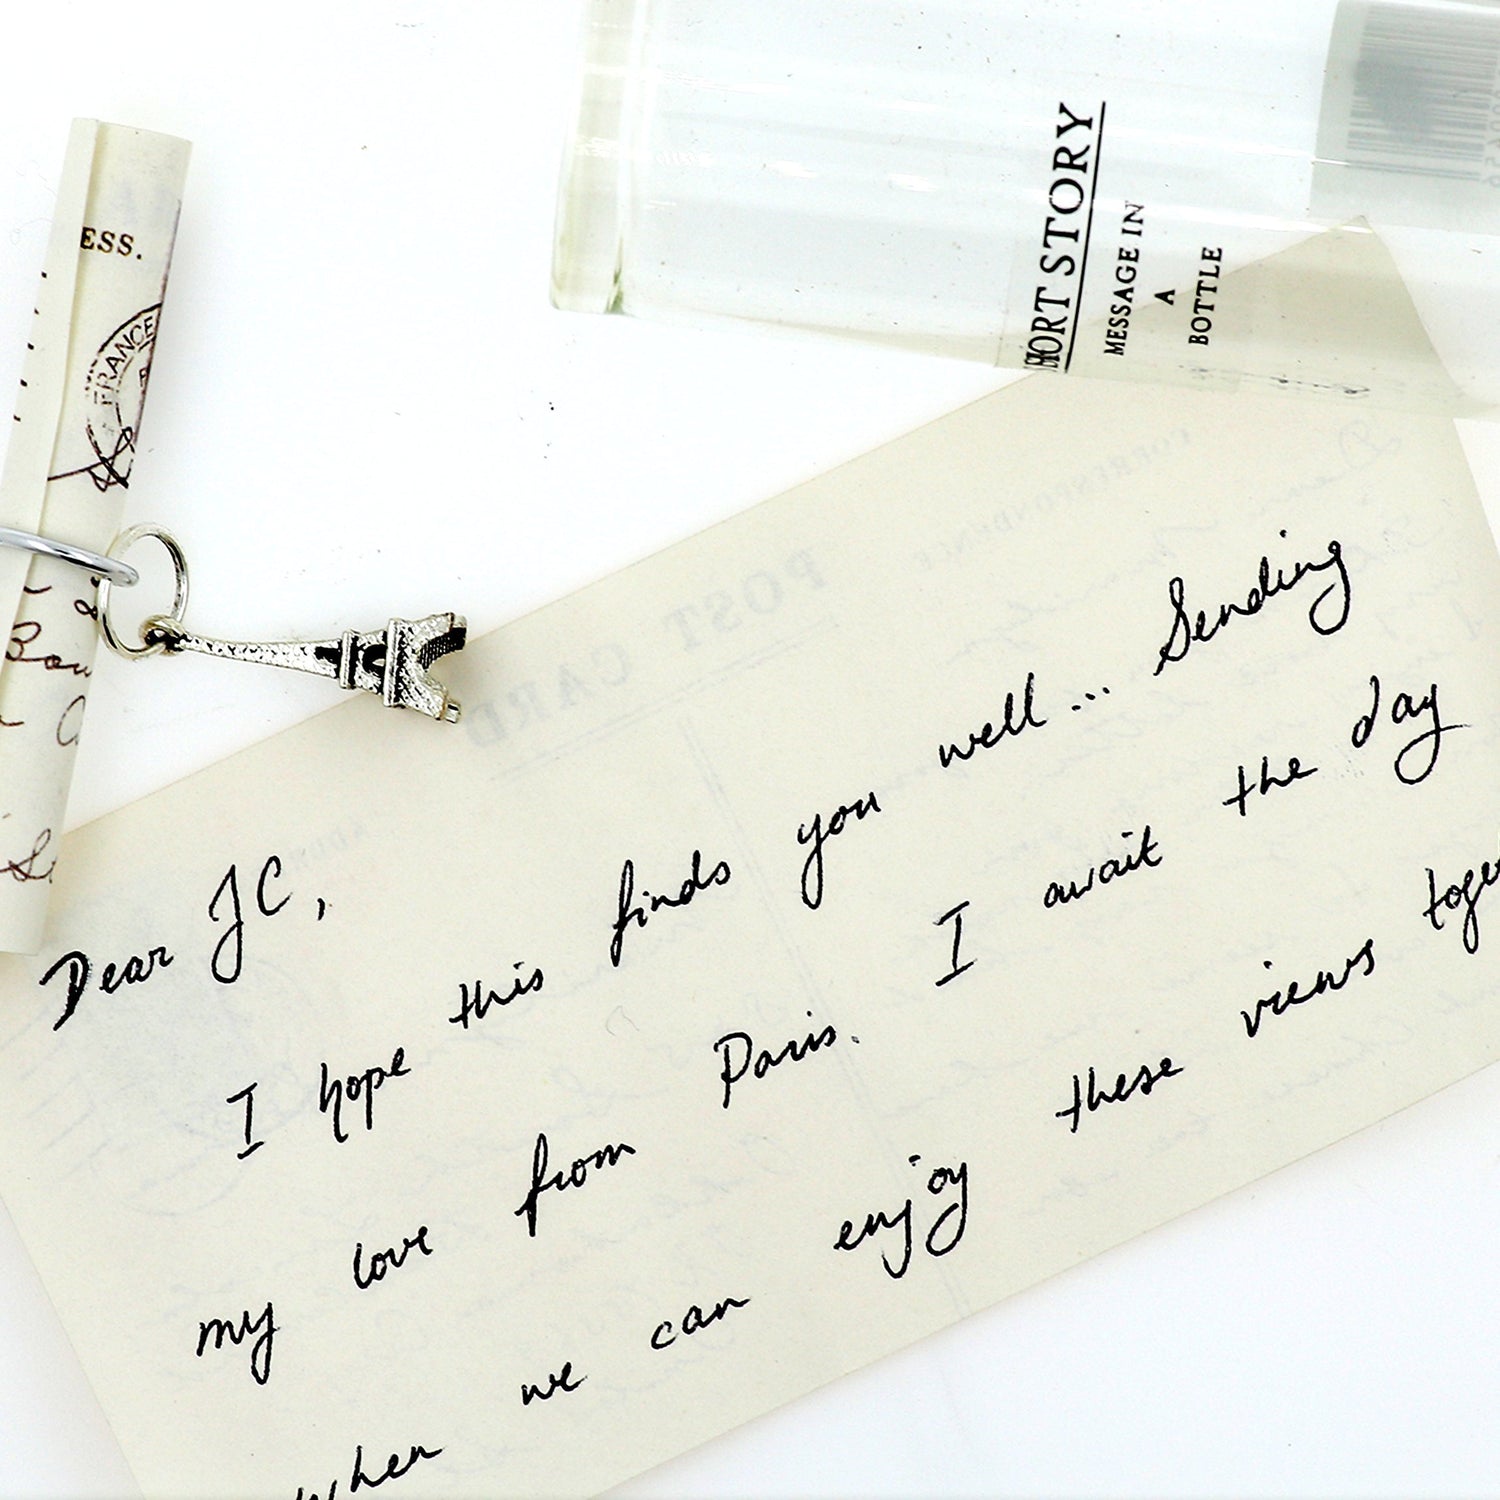 ESS.
FRANCE
SHORT STORY
MESSAGE IN
A
BOTTLE
CORRESPONDENCE
POST CARD
Dear JC,
I hope this finds you well... Sending
my love from Paris. I await the day
when we can enjoy these views toge